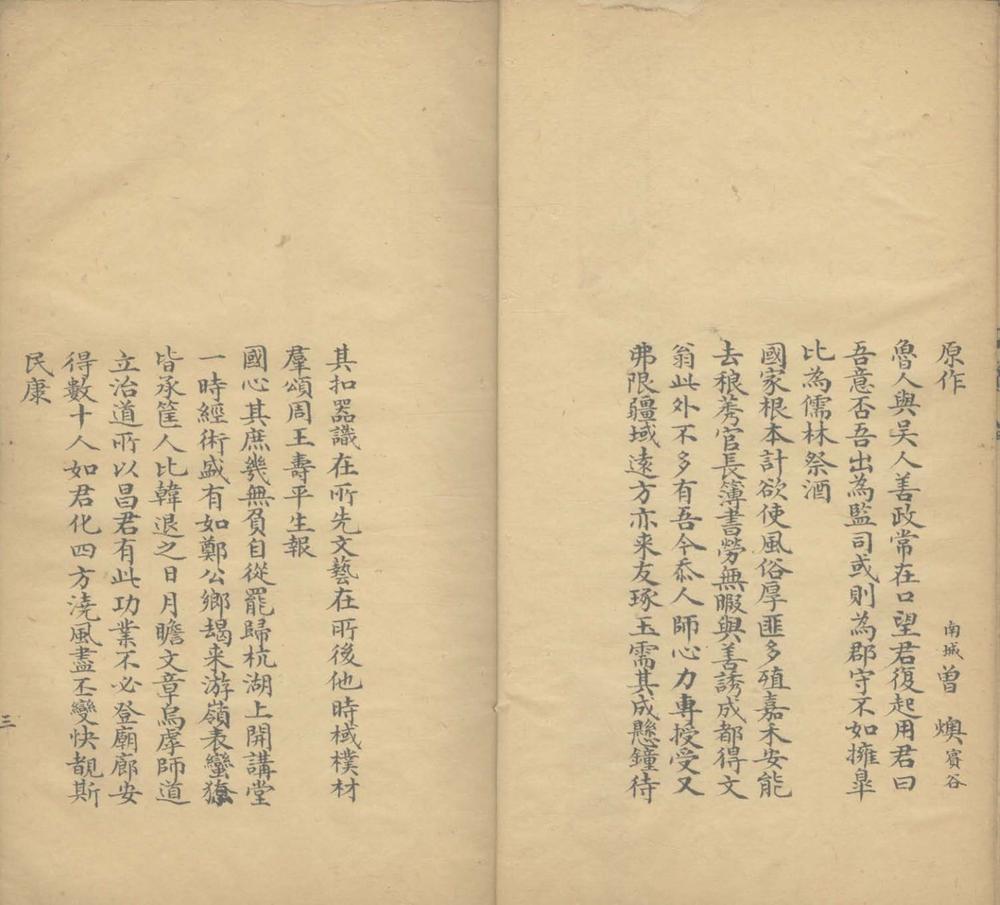 原作
南城曾燠賓谷
魯人與吳人善政常在口望君復起用君曰
吾意否吾出為監司或則為郡守不如擁臯
比為儒林祭酒
國家根本計欲使風俗厚匪多殖嘉禾安能
去稂莠官長簿書勞無暇與善誘成都得文
翁此外不多有吾今忝人師心力專授受又
弗限疆域遠方亦来友琢玉需其成懸鐘待
其扣器識在所先文藝在所後他時棫樸材
羣頌周王壽平生報
國心其庶幾無負自從罷歸杭湖上開講堂
一時經術盛有如鄭公鄉朅来游嶺表蠻猺
皆承筐人比韓退之日月瞻文章烏虖師道
立治道所以昌君有此功業不必登廟廊安
得數十人如君化四方澆風盡丕變快覩斯
民康
三